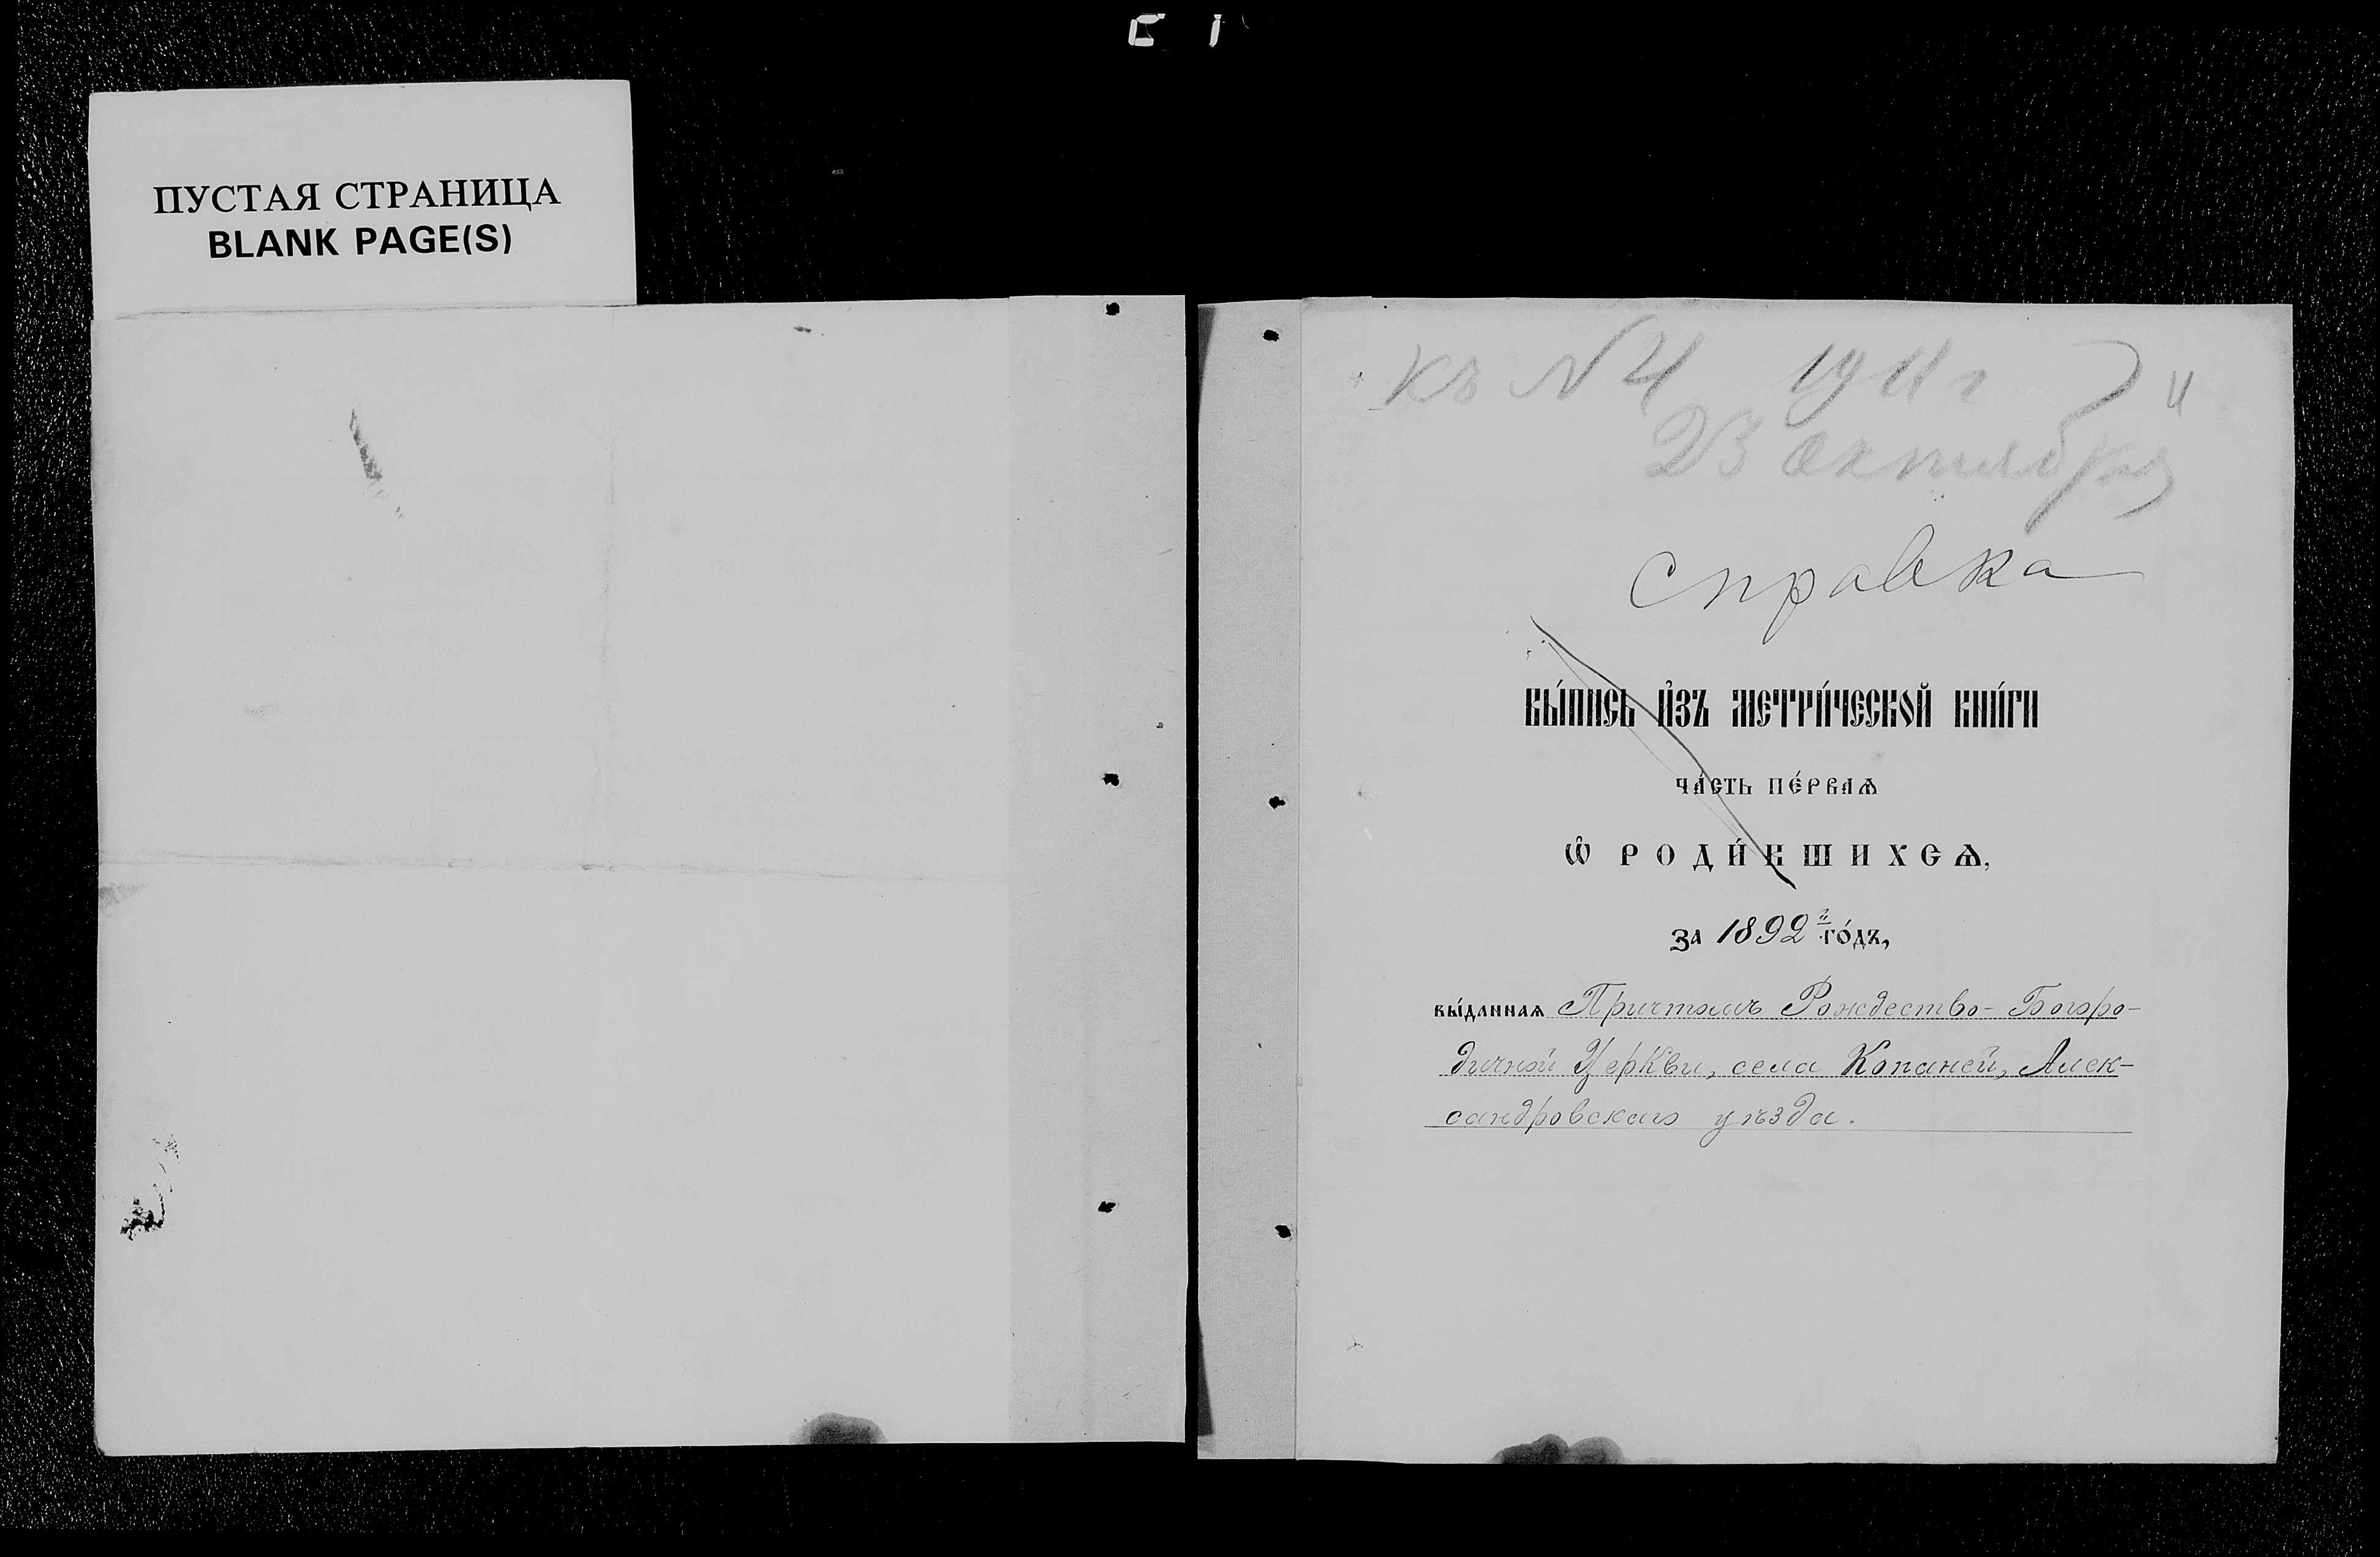 ПУСТАЯ СТРАНИЦА
BLANK PAGE(S)
къ № 4 1911 г
23 октября
Справка
Вы́пись и҆зъ метри́ческой кни́ги
ча́сть пе́рваѧ
ѽ роди́вшихсѧ,
за 1892й го́дъ,
вы́даннаѧ Причтомъ Рождество-Богоро-
дичной Церкви, села Копаней, Алек-
сандровскаго уѣзда.